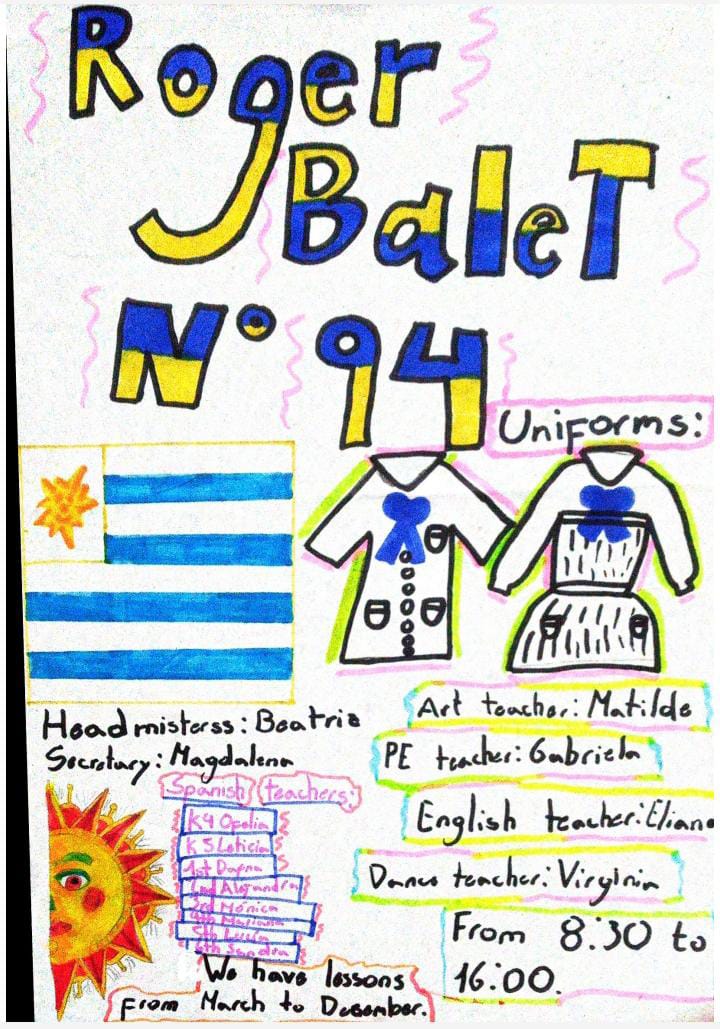 Roger
Balet
N° 94
Uniforms:
Headmisterss: Beatriz
Secretary: Magdalena
Art teacher: Matilde
PE teacher: Gabriela
English teacher: Eliana
Dance teacher: Virginia
From 8:30 to
16:00.
Spanish teachers:
K4 Ofelia
K5 Leticia
1st Dafna
2nd Alejandra
3rd Mónica
4th Mariana
5th Lucía
6th Sandra
We have lessons
From March to December.